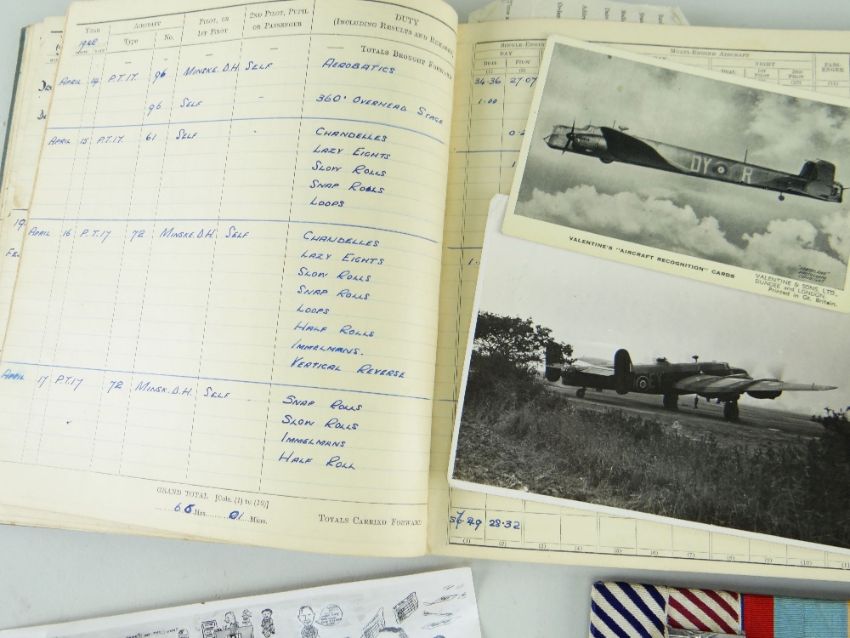 YEAR AIRCRAFT PILOT, OR 2ND PILOT, PUPIL DUTY
1942 Type No. 1ST PILOT OR PASSENGER (INCLUDING RESULTS AND REMARKS
— — — — — TOTALS BROUGHT FORWARD
APRIL 14 P.T.17. 96 MINSKE.D.H. SELF AEROBATICS
96 SELF 360° OVERHEAD STAGE
APRIL 15 P.T.17. 61 SELF CHANDELLES
LAZY EIGHTS
SLOW ROLLS
SNAP ROLLS
LOOPS
APRIL 16 P.T.17 72 MINSKE.D.H. SELF CHANDELLES
LAZY EIGHTS
SLOW ROLLS
SNAP ROLLS
LOOPS
HALF ROLLS
IMMELMANS.
VERTICAL REVERSE
APRIL 17 P.T.17 72 MINSK.D.H. SELF SNAP ROLLS
SLOW ROLLS
IMMELMANS
HALF ROLL
GRAND TOTAL [Cols. (1) to (10)]
Hrs. 01 Mins. TOTALS CARRIED FORWARD
SINGLE-ENGINE MULTI-ENGINE AIRCRAFT
DAY NIGHT PASS-ENGER
DUAL PILOT
(1) (2)
34.36 27.07
1.00
28.32
DY R
VALENTINE'S "AIRCRAFT RECOGNITION" CARDS
VALENTINE & SONS, LTD.,
DUNDEE AND LONDON.
Printed in Gt. Britain.